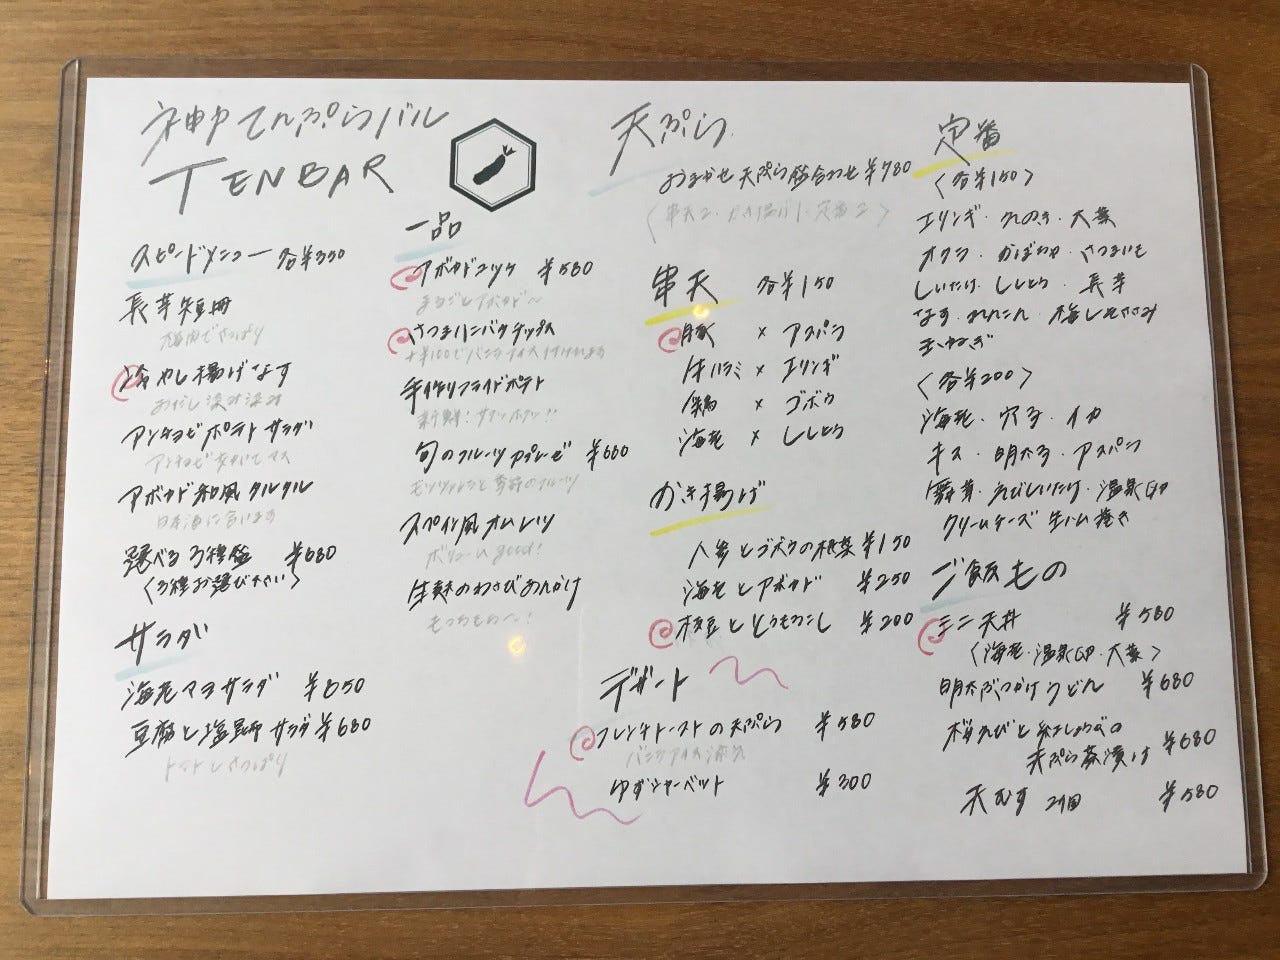 神田 てんぷらバル
TENBAR
スピードメニュー 各¥350
長芋短冊
梅肉でさっぱり
冷やし揚げなす
おだし染み染み
アンチョビポテトサラダ
アンチョビきかせてマス
アボカド和風タルタル
日本酒に合います
選べる3種盛 ¥680
〈3種お選び下さい〉
サラダ
海老マヨサラダ ¥650
豆腐と塩昆布サラダ ¥680
トマトとさっぱり
一品
アボカドコロッケ ¥580
まるごとアボカド〜
さつまハニーバターチップス
+¥100でバニラアイス付けれます
手作りフライドポテト
新鮮!サクッホクッ!!
旬のフルーツカプレーゼ ¥680
モッツァレラと季節のフルーツ
スペイン風オムレツ
ボリュームgood!
生麩のわさびあんかけ
もっちもち〜!
天ぷら
おまかせ天ぷら盛合わせ ¥780
〈串天2・かき揚げ1・定番2〉
串天 各¥150
豚 × アスパラ
牛ハラミ × エリンギ
鶏 × ゴボウ
海老 × ししとう
かき揚げ
人参とゴボウの根菜 ¥150
海老とアボカド ¥250
枝豆ととうもろこし ¥200
デザート
フレンチトーストの天ぷら ¥580
バニラアイス添え
ゆずシャーベット ¥300
定番
〈各¥150〉
エリンギ・えのき・大葉
オクラ・かぼちゃ・さつまいも
しいたけ・ししとう・長芋
なす・れんこん・梅しそささみ
玉ねぎ
〈各¥200〉
海老・穴子・イカ
キス・明太子・アスパラ
舞茸・えびしいたけ・温泉卵
クリームチーズ生ハム巻き
ご飯もの
ミニ天丼 ¥580
〈海老・温泉卵・大葉〉
明太ぶっかけうどん ¥680
桜えびと紅しょうがの
天ぷら茶漬け ¥680
天むす 2個 ¥580